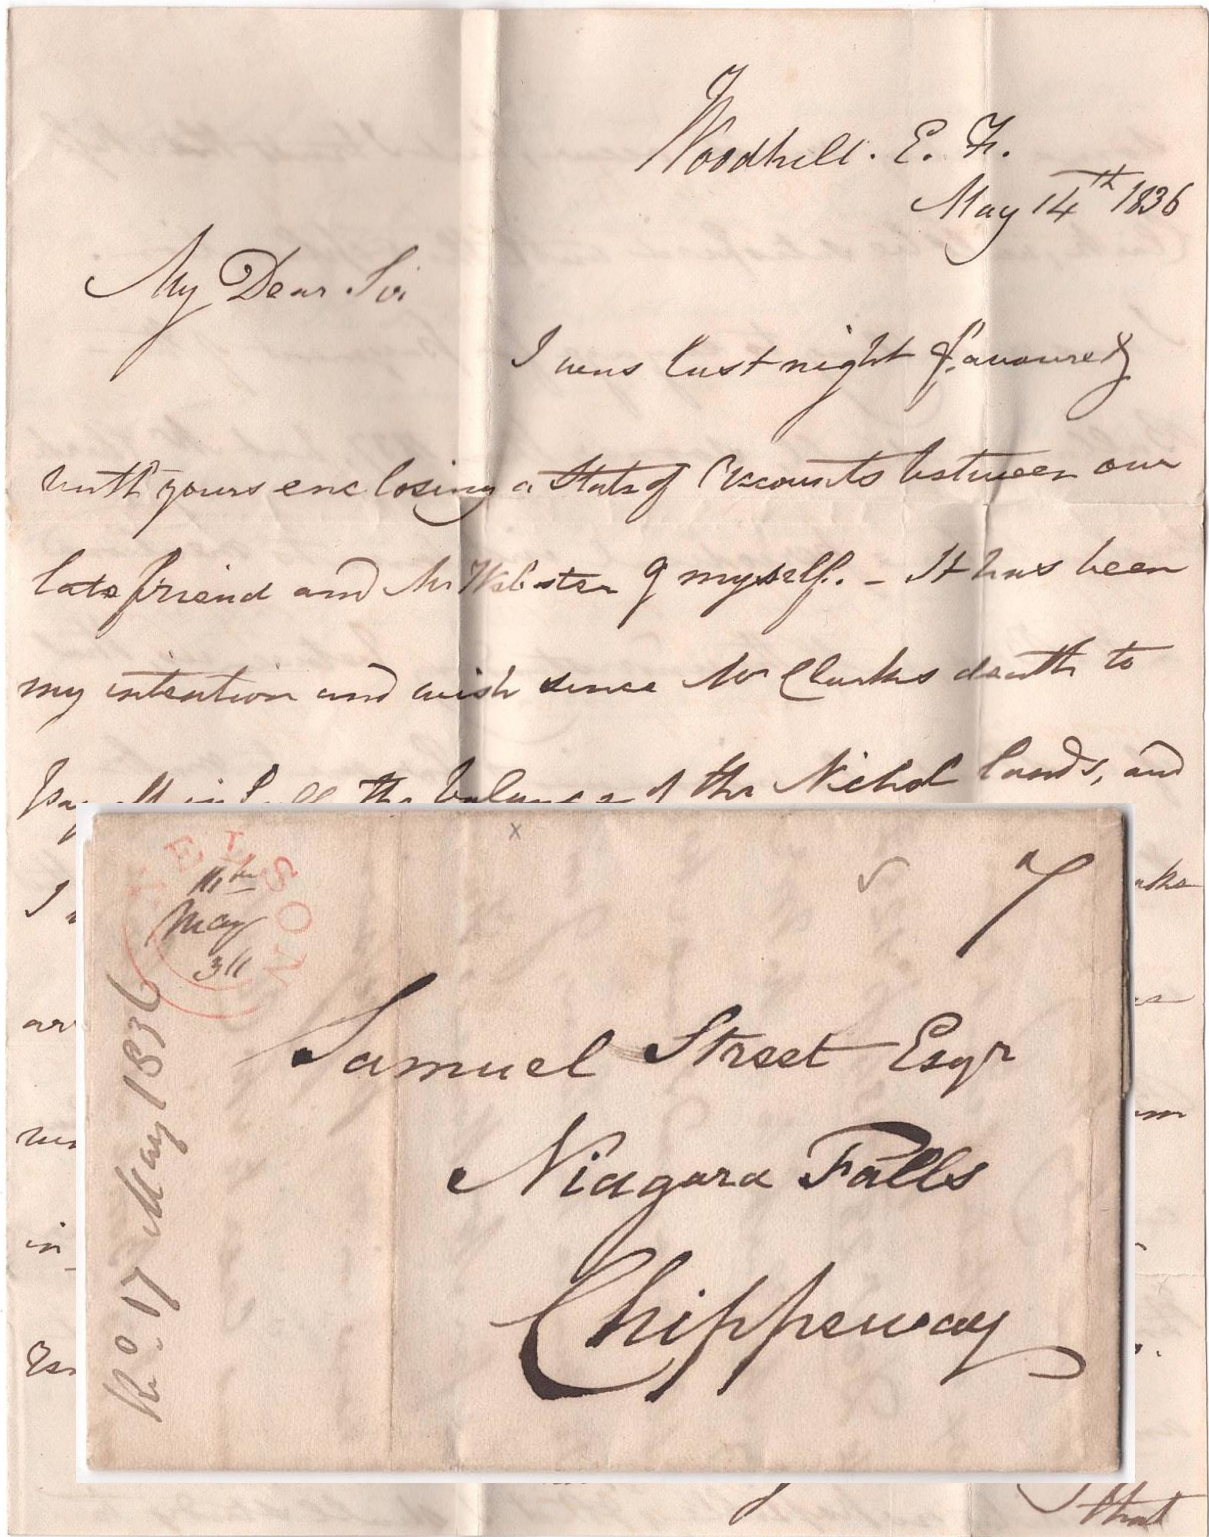 Woodhill. E. F.
May 14th 1836
My Dear Sir
I was last night favoured
with yours enclosing a State of Accounts between our
late friend and Mr Webster & myself. - It has been
my intention and wish since Mr Clarks death to
pay off in full the balance of the Nichol lands, and
I
in
that
NELSON
May
Samuel Street Esqr
Niagara Falls
Chippeway
7
Rd. 17 May 1836